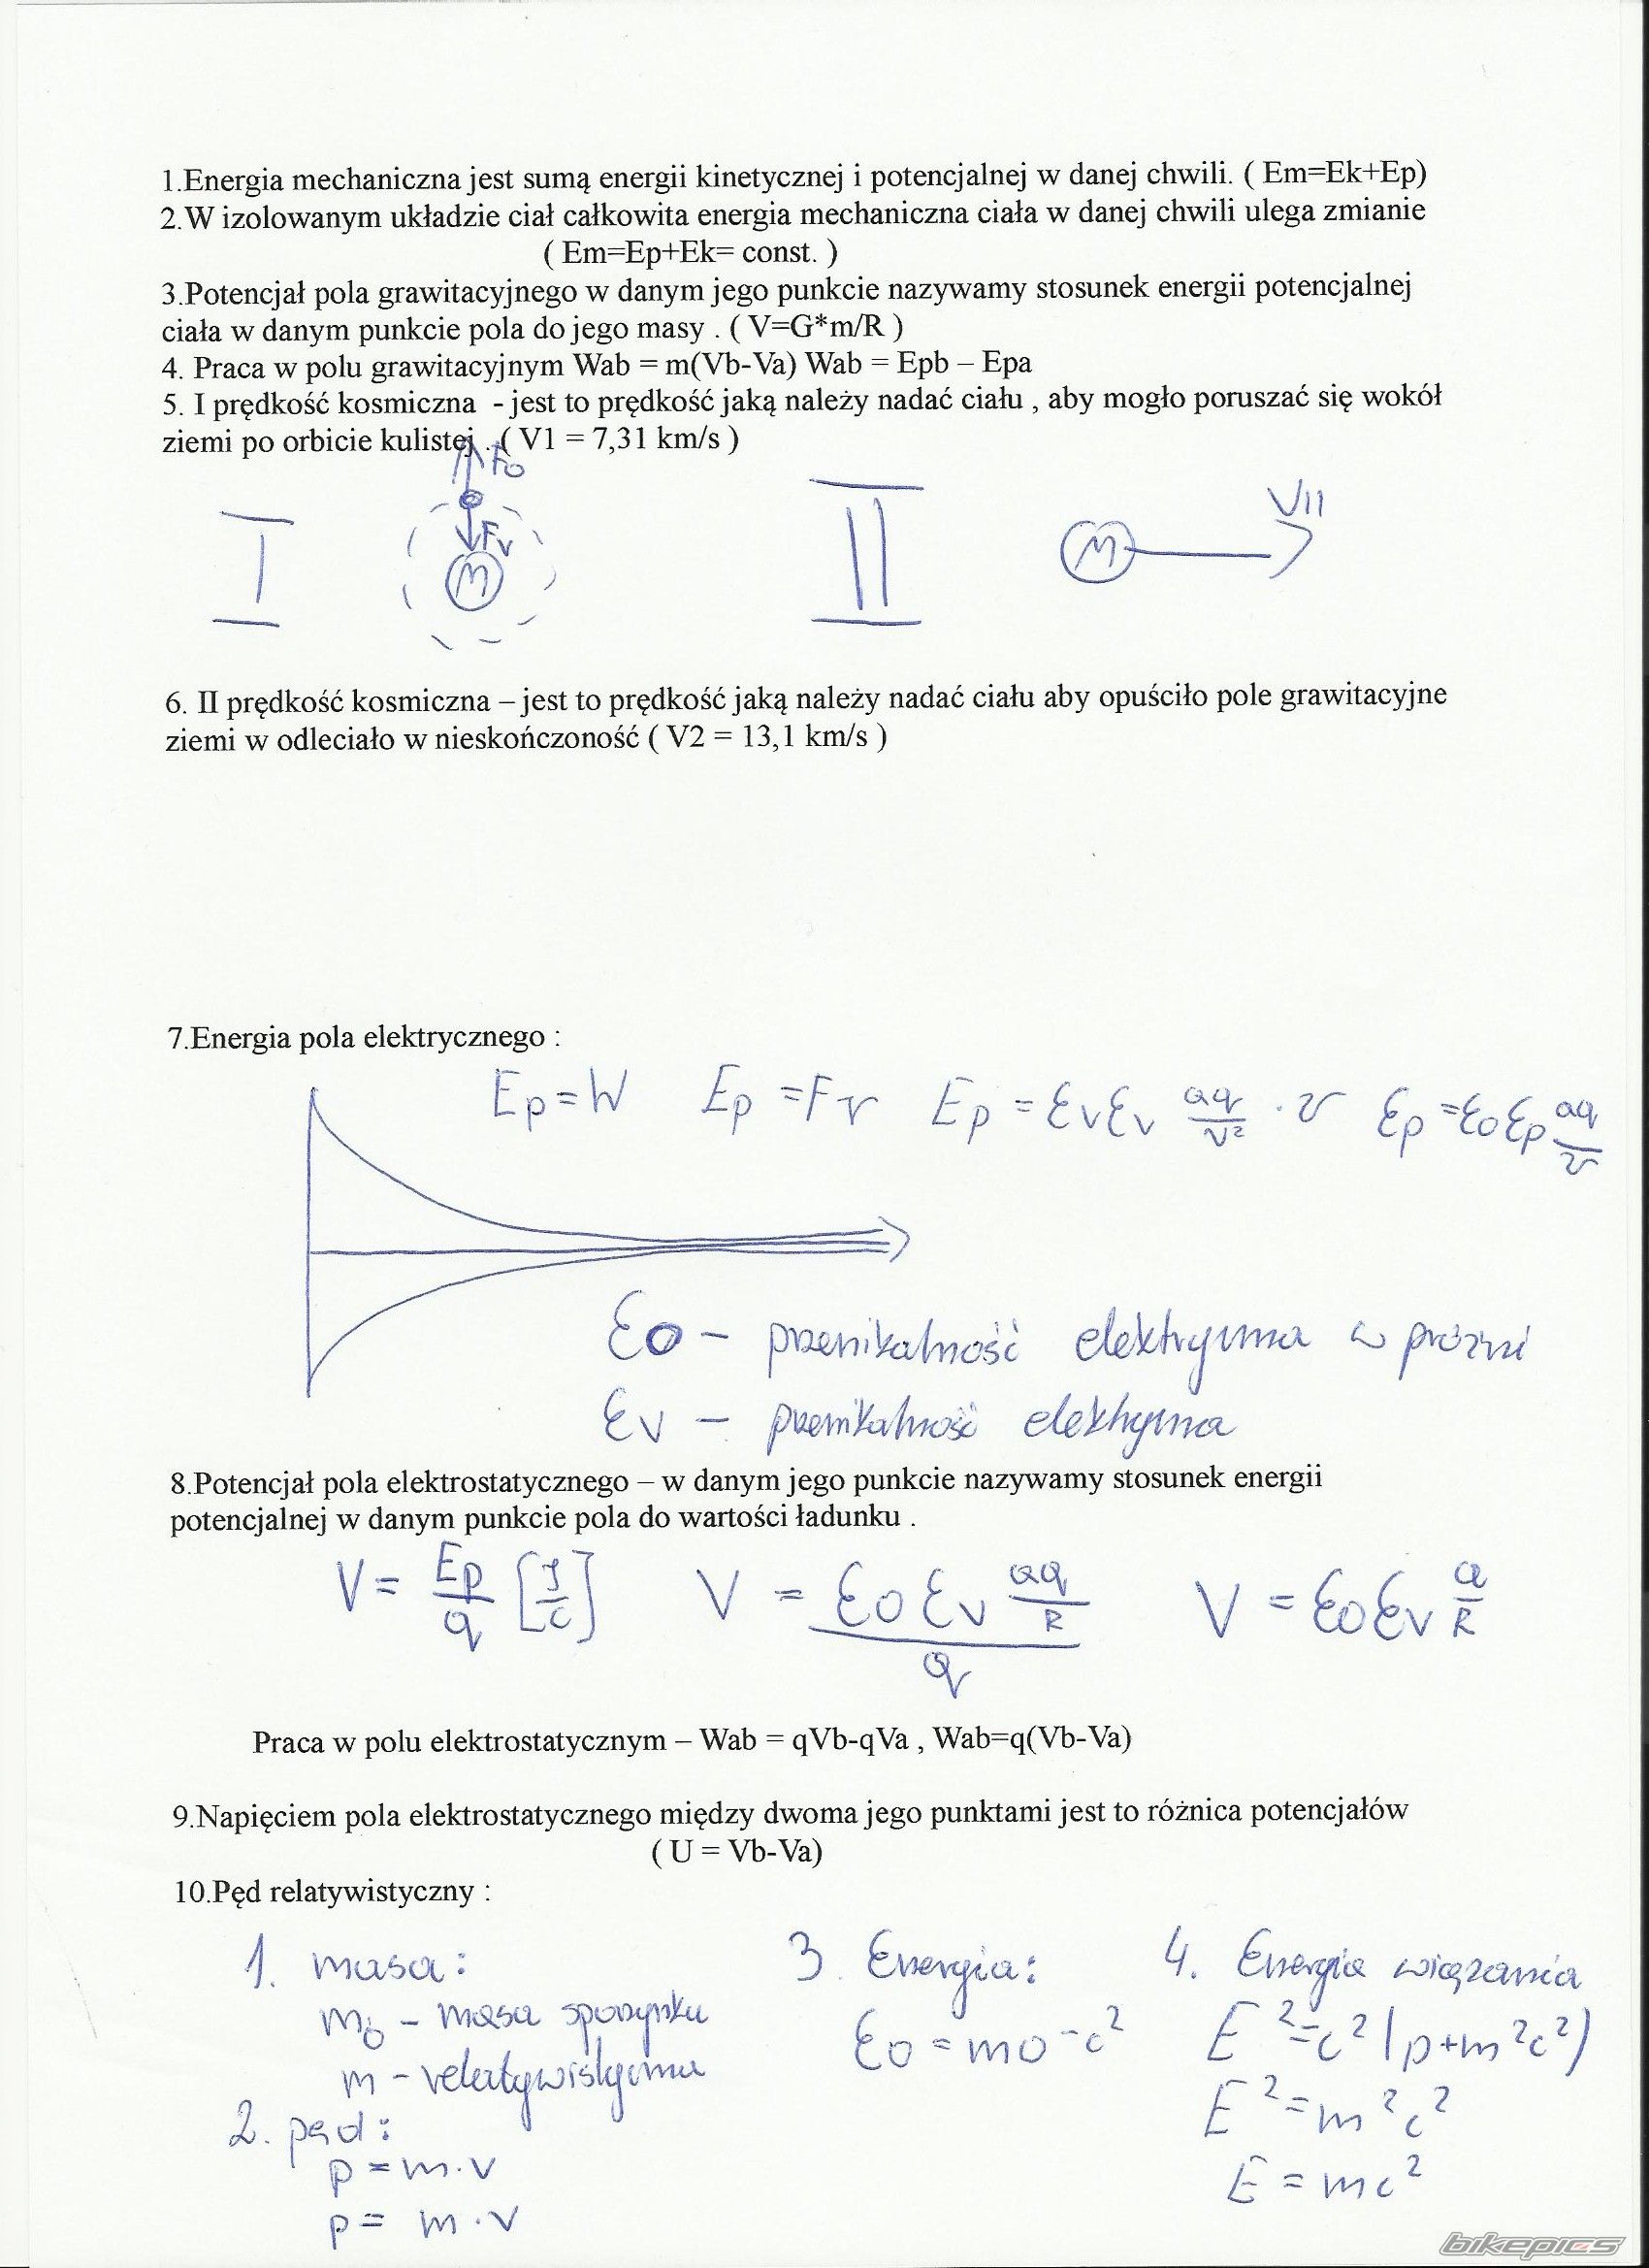 1.Energia mechaniczna jest sumą energii kinetycznej i potencjalnej w danej chwili. ( Em=Ek+Ep)
2.W izolowanym układzie ciał całkowita energia mechaniczna ciała w danej chwili ulega zmianie
( Em=Ep+Ek= const. )
3.Potencjał pola grawitacyjnego w danym jego punkcie nazywamy stosunek energii potencjalnej
ciała w danym punkcie pola do jego masy . ( V=G*m/R )
4. Praca w polu grawitacyjnym Wab = m(Vb-Va) Wab = Epb – Epa
5. I prędkość kosmiczna - jest to prędkość jaką należy nadać ciału , aby mogło poruszać się wokół
ziemi po orbicie kulistej . ( V1 = 7,31 km/s )
Fo
I Fv M II M VII
6. II prędkość kosmiczna – jest to prędkość jaką należy nadać ciału aby opuściło pole grawitacyjne
ziemi w odleciało w nieskończoność ( V2 = 13,1 km/s )
7.Energia pola elektrycznego :
Ep=W Ep=Fr Ep=εvεv QQ/r² · r εp=εoεp QQ/r
εo – przenikalność elektryczna w próżni
εv – przenikalność elektryczna
8.Potencjał pola elektrostatycznego – w danym jego punkcie nazywamy stosunek energii
potencjalnej w danym punkcie pola do wartości ładunku .
V = Ep/q [J/C] V = εoεv QQ/R / q V = εoεv Q/R
Praca w polu elektrostatycznym – Wab = qVb-qVa , Wab=q(Vb-Va)
9.Napięciem pola elektrostatycznego między dwoma jego punktami jest to różnica potencjałów
( U = Vb-Va)
10.Pęd relatywistyczny :
1. masa: 3. Energia: 4. Energia wiązania
mo – masa spoczynku εo = mo-c² E²=c²(p+m²c²)
m – relatywistyczna E²=m²c²
2. pęd: E=mc²
p=m·v
p= m·v
bikepics